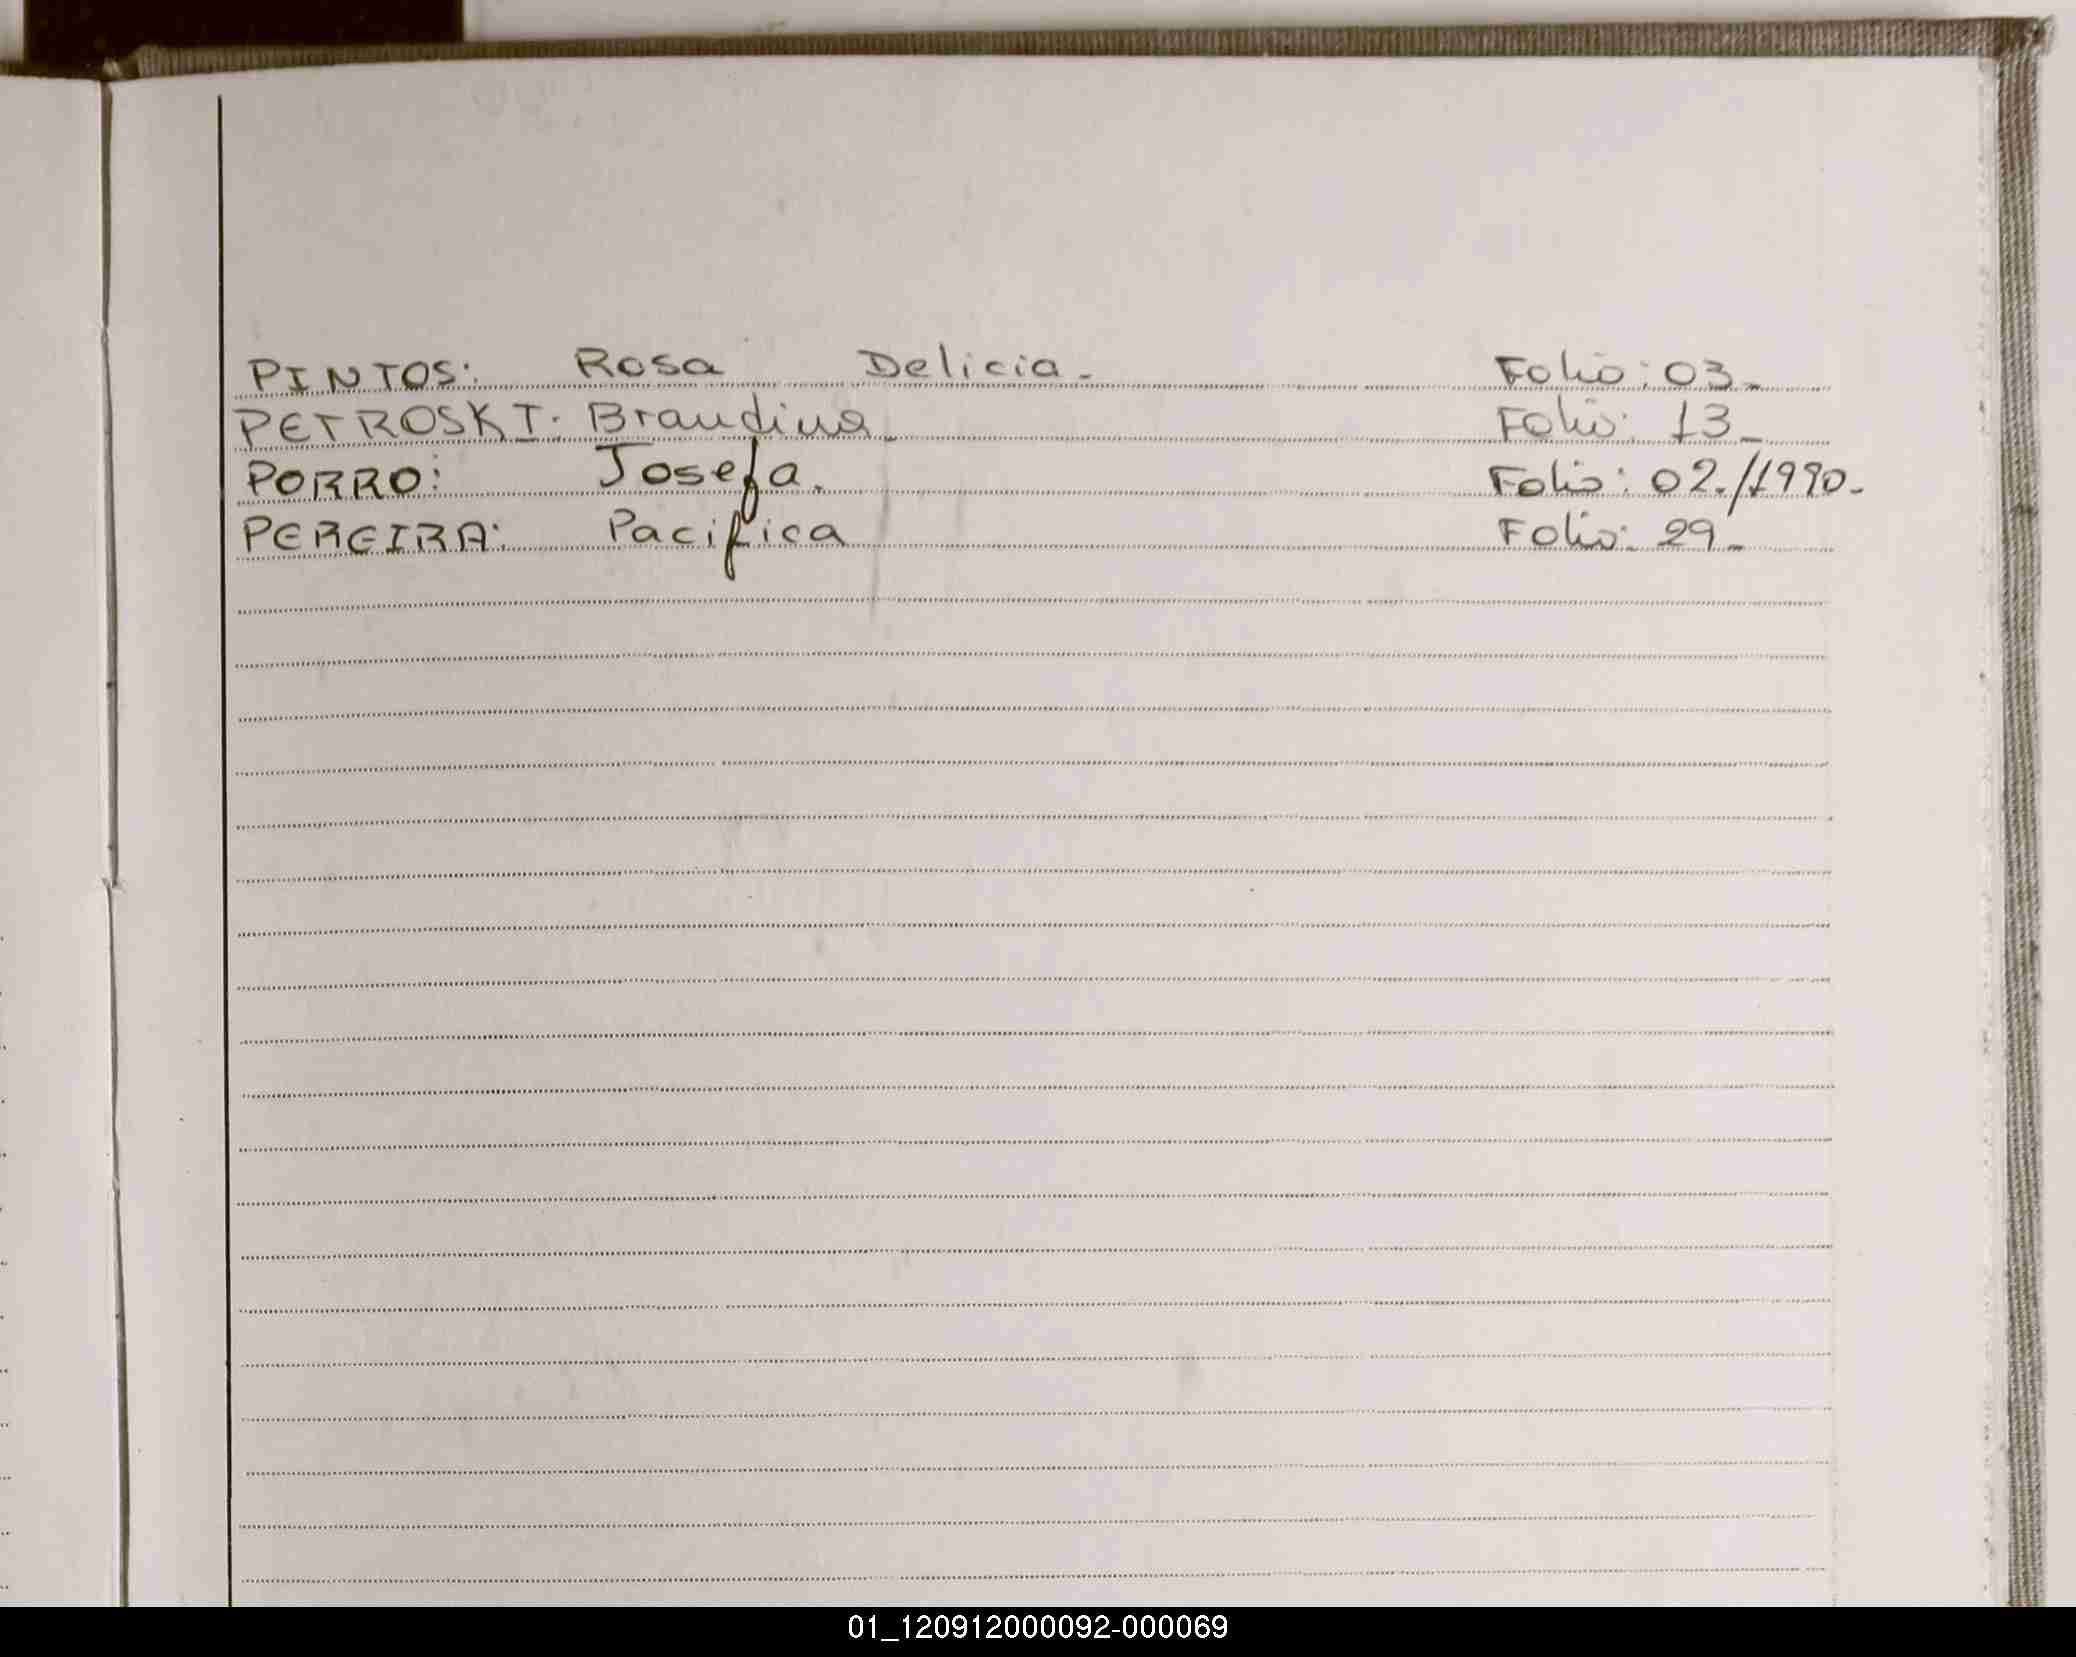 PINTOS: Rosa Delicia. Folio: 03.
PETROSKI. Brandina. Folio: 13.
PORRO: Josefa. Folio: 02./1990.
PEREIRA: Pacifica Folio: 29.
01_120912000092-000069